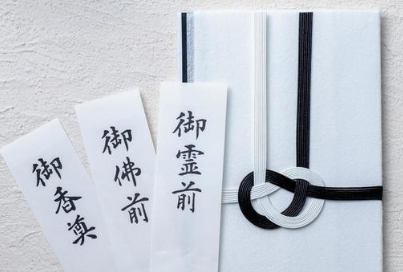 御香奠
御佛前
御霊前